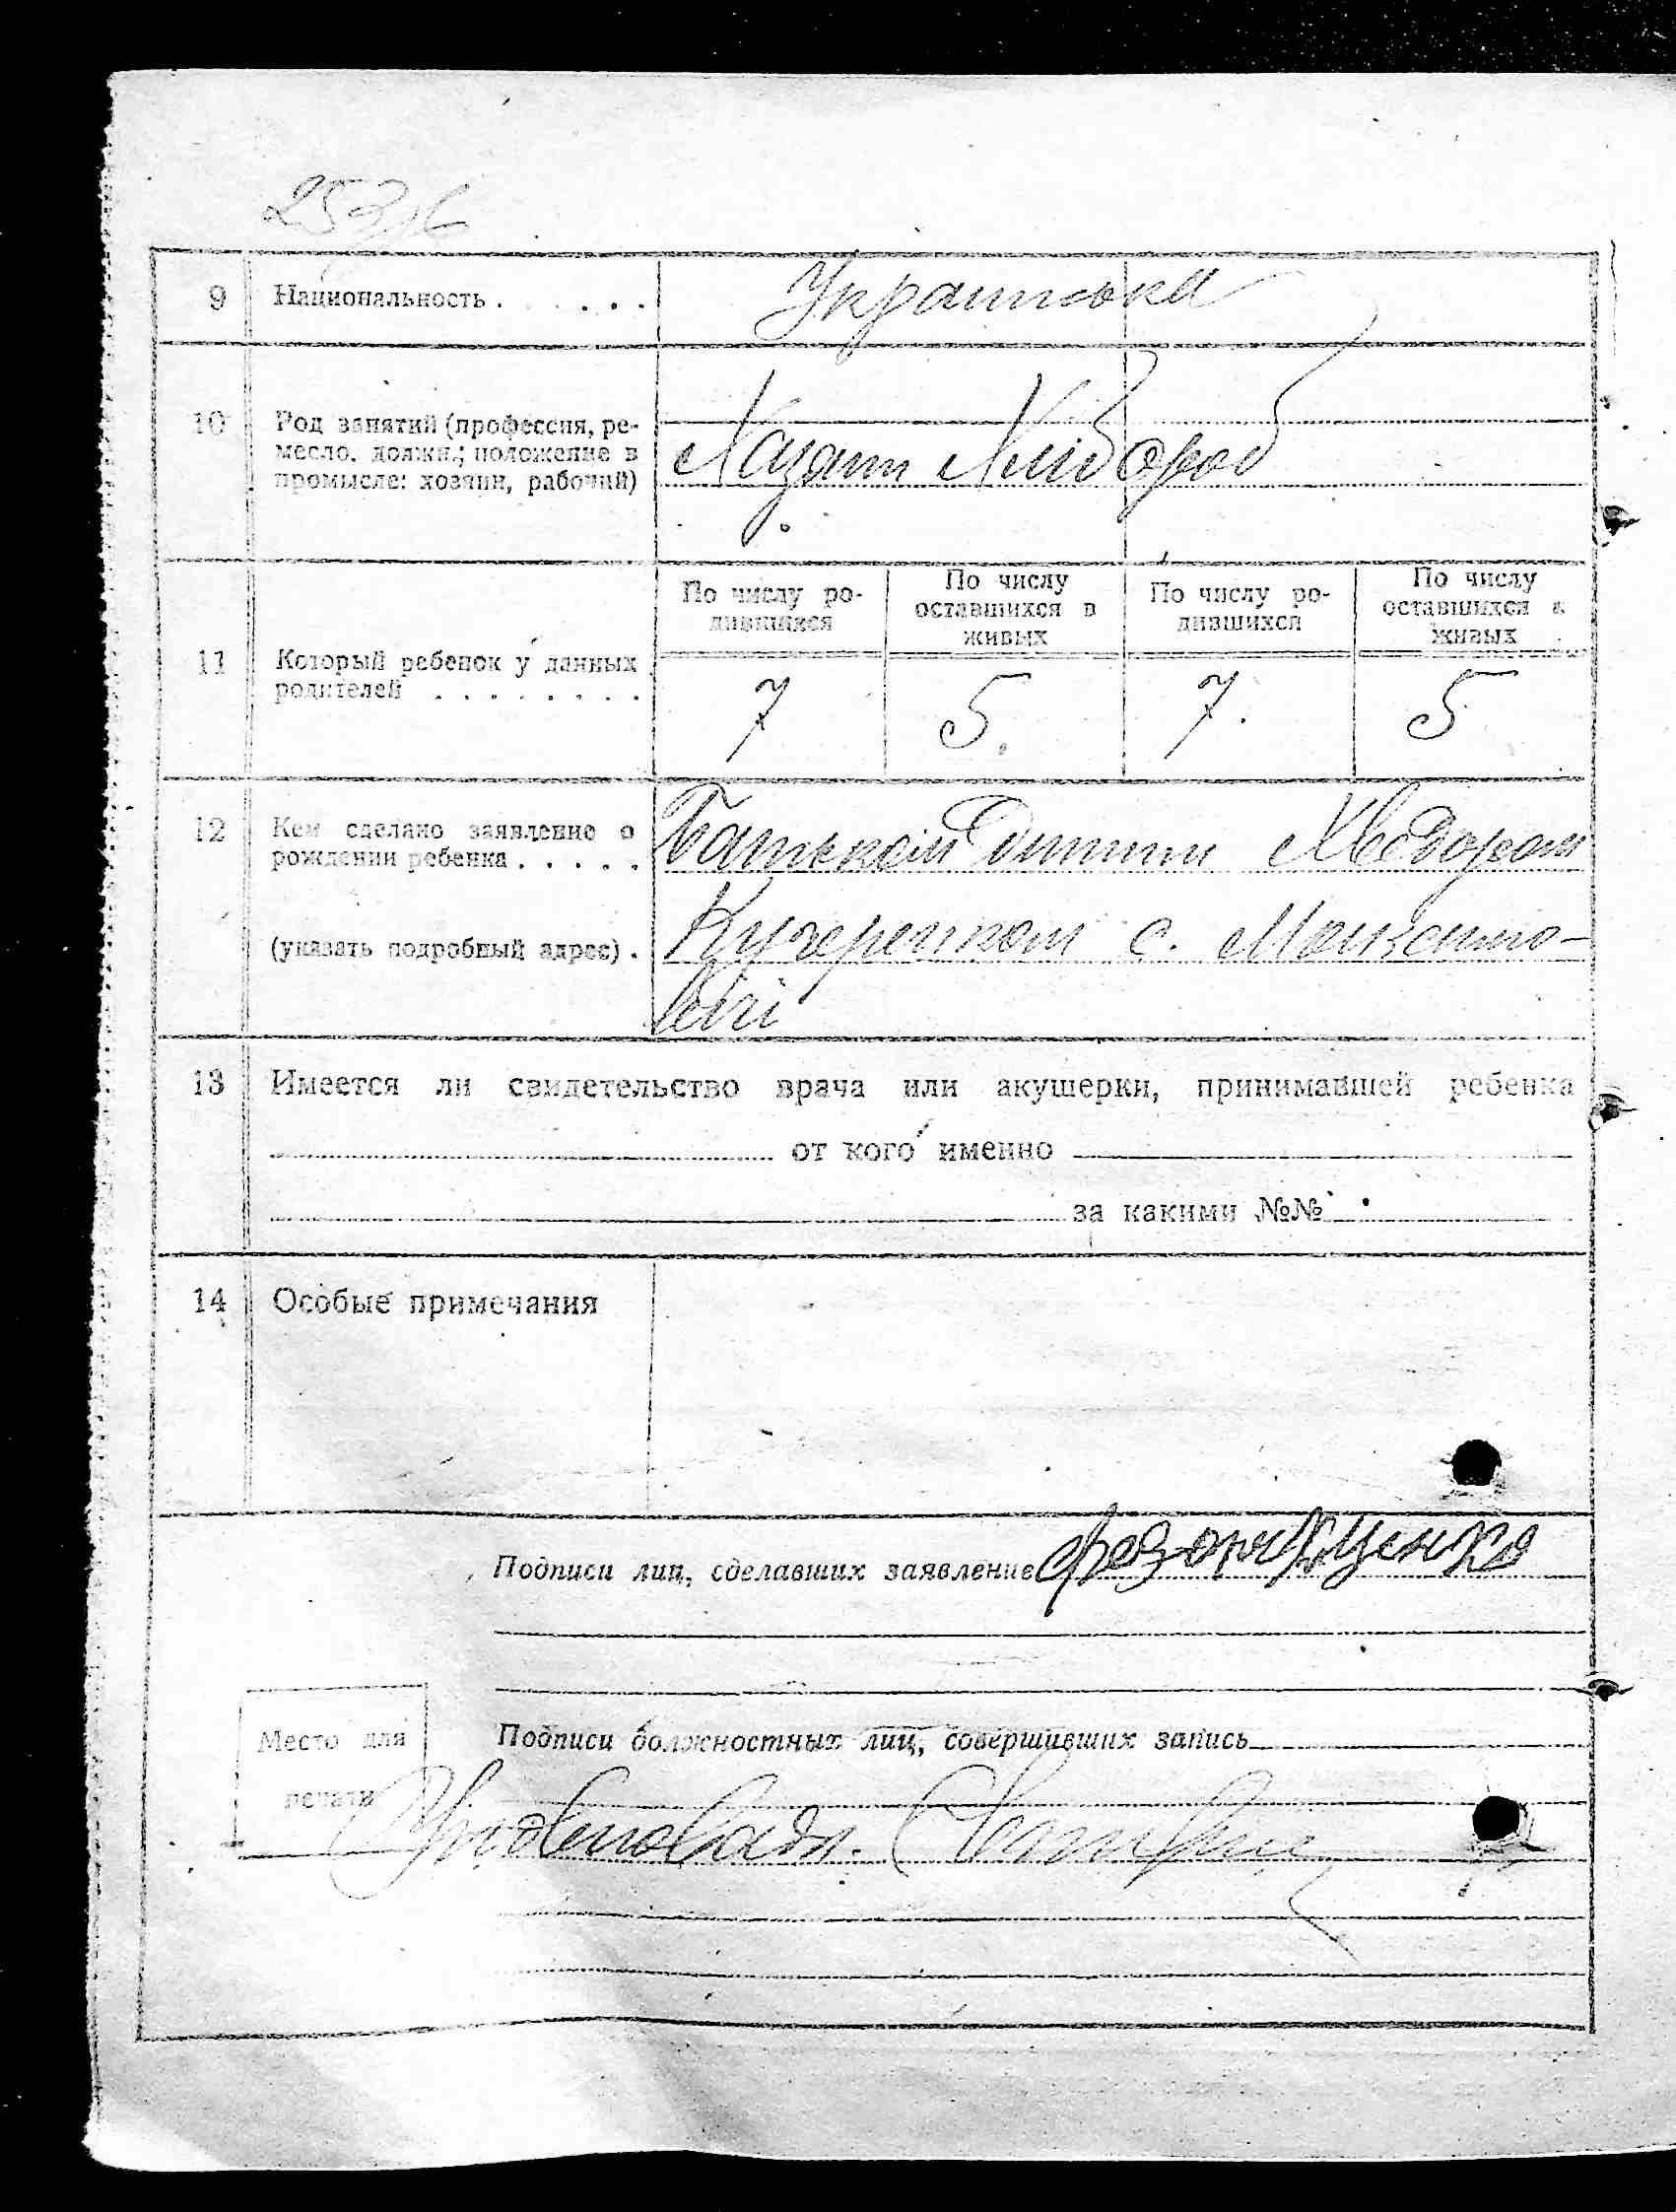 9 Национальность . . . . . . Українська
10 Род занятий (профессия, ре-
месло, должн.; положение в
промысле: хозяин, рабочий)
Хлібороб
По числу ро-
дившихся
По числу
оставшихся в
живых
По числу ро-
дившихся
По числу
оставшихся в
живых
11 Который ребенок у данных
родителей . . . . . . . .
7 5. 7. 5
12 Кем сделано заявление о
рождении ребенка . . . . .
Батьком Хведором
(указать подробный адрес) .
Кучеренком с. Максимо-
вічі
13 Имеется ли свидетельство врача или акушерки, принимавшей ребенка
от кого именно
за какими №№
14 Особые примечания
Подписи лиц, сделавших заявление
Место для
печати
Подписи должностных лиц, совершивших запись